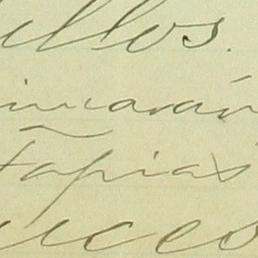 ellos.
incarán
tapias
uces